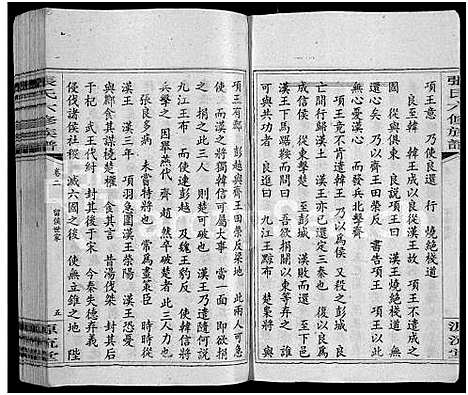 張氏六修族譜
源流堂
項王意 乃使良還 行 燒絕棧道
良至韓 韓王成以良從漢王故 項王不遣成之國
從與俱東 良說項王曰 漢王燒絕棧道 無還
心矣 乃以齊王田榮反 書告項王 項王以此
無心憂漢心 而發兵北擊齊
項王竟不肯遣韓王 乃以為侯 又殺之彭城 良
亡間行歸漢王 漢王亦已還定三秦矣 復以良
為成信侯 從東擊楚 至彭城 漢敗而還 至下邑
漢王下馬踞鞍而問曰 吾欲捐關以東等棄之 誰
可與共功者 良進曰 九江王黥布 楚梟將 與
項王有郄 彭越與齊王田榮反梁地 此兩人可急
使 而漢王之將 獨韓信可屬大事 當一面 即欲捐
之 捐之此三人 則楚可破也 漢王乃遣隨何說
九江王布 而使人連彭越 及魏王豹反 使韓信將
兵擊之 因舉燕代齊趙 然卒破楚者 此三人力也
張良多病 未嘗特將也 常為畫策臣 時時從
漢王 漢三年 項羽急圍漢王滎陽 漢王恐憂
與酈食其謀橈楚權 食其曰 昔湯伐桀 封其後
於杞 武王伐紂 封其後於宋 今秦失德棄義
侵伐諸侯社稷 滅六國之後 使無立錐之地 陛
張氏六修族譜
卷二
留侯世家
五
源流堂